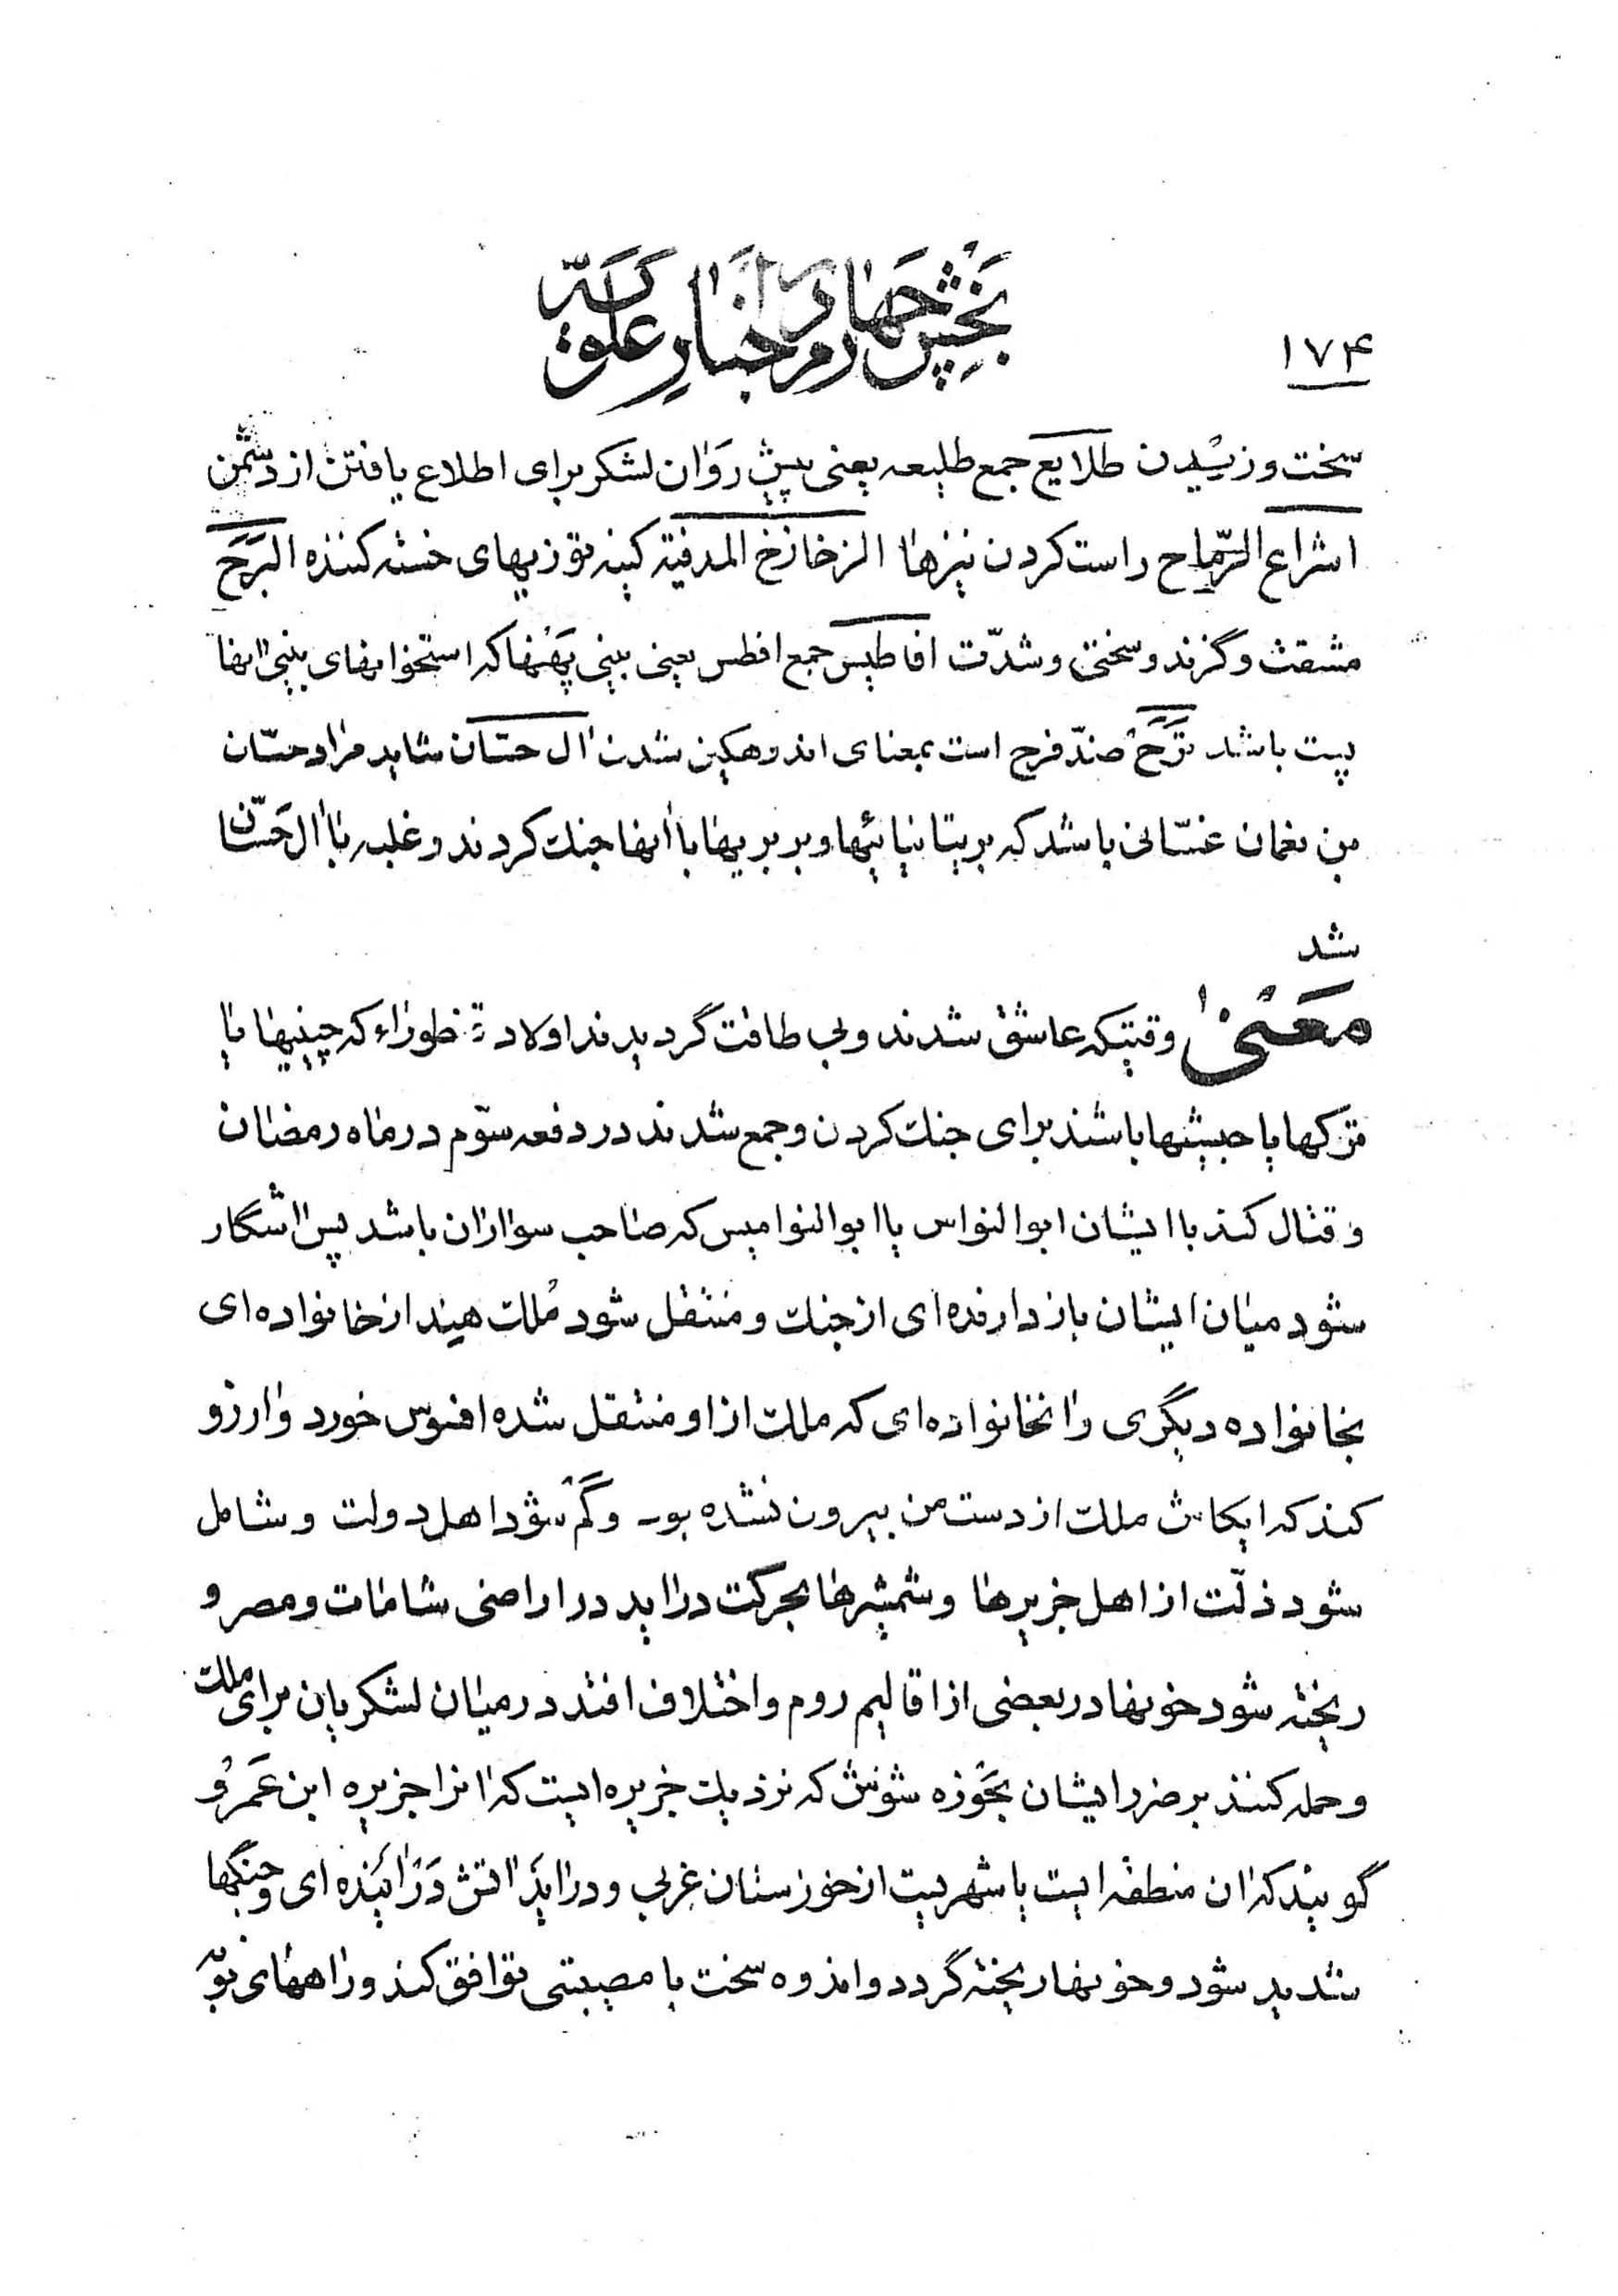 ۱۷۴
بخش چهارم از اخبار علویه
سخت وزیدن طلایع جمع طلیعه یعنی پیش روان لشکر برای اطلاع یافتن از دشمن
اشراع الرّماح راست کردن نیزها الزخازخ المدفیة کینه توزیهای خسته کننده البَرَح
مشقت و گزند و سختی و شدّت افاطیس جمع افطس یعنی بینی پهنها که استخوانهای بینی آنها
پست باشد تَرَحْ ضدّ فرح است بمعنای اندوهکین شدن ال حسّان شاید مراد حسّان
بن نعمان غسّانی باشد که بریتانیائیها و بربریها با آنها جنک کردند و غلبه با آل حَسّان
شد
معنی وقتیکه عاشق شدند و بی طاقت گردیدند اولاد قنطوراء که چینیها یا
ترکها یا حبشیها باشند برای جنک کردن و جمع شدند در دفعه سوّم در ماه رمضان
و قتال کند با ایشان ابوالنواس یا ابوالنوامیس که صاحب سواران باشد پس آشکار
شود میان ایشان بازدارنده ای از جنک و منتقل شود مُلک هند از خانواده ای
بخانواده دیگری و آنخانواده ای که ملک از او منتقل شده افسوس خورد و آرزو
کند که ایکاش ملک از دست من بیرون نشده بود و گُم شود اهل دولت و شامل
شود ذلّت از اهل جزیرها و شمشیرها بحرکت درآید در اراضی شامات و مصر و
ریخته شود خونها در بعضی از اقالیم روم و اختلاف افتد در میان لشکریان برای ملک
و حمله کنند بر ضرر ایشان بحَوزه شوش که نزدیک جزیره ایست که آنرا جزیره ابن عَمرو
گویند که آن منطقه ایست یا شهریست از خوزستان غربی و درآید آتش درآینده ای و جنگها
شدید شود و خونها ریخته گردد و اندوه سخت با مصیبتی توافق کند و راههای